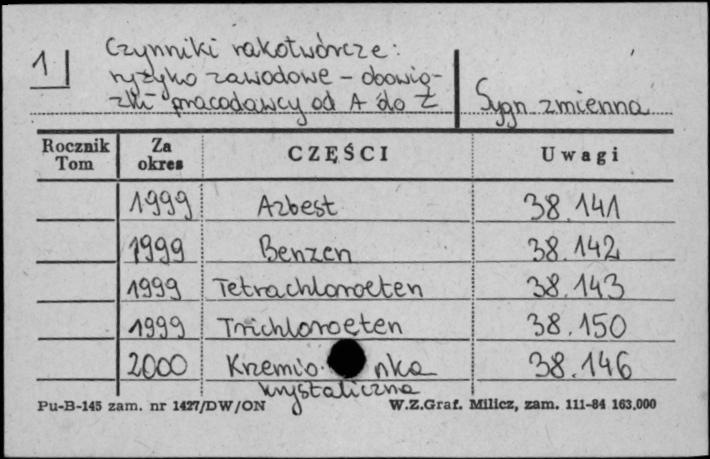 1
Czynniki rakotwórcze:
ryzyko zawodowe - obowią-
zki pracodawcy od A do Z
Sygn. zmienna
Rocznik Tom
Za okres
CZĘŚCI
Uwagi
1999 Azbest 38.141
1999 Benzen 38.142
1999 Tetrachloroeten 38.143
1999 Trichloroeten 38.150
2000 Krzemio nka 38.146
krystaliczna
Pu-B-145 zam. nr 1427/DW/ON W.Z.Graf. Milicz, zam. 111-84 163,000